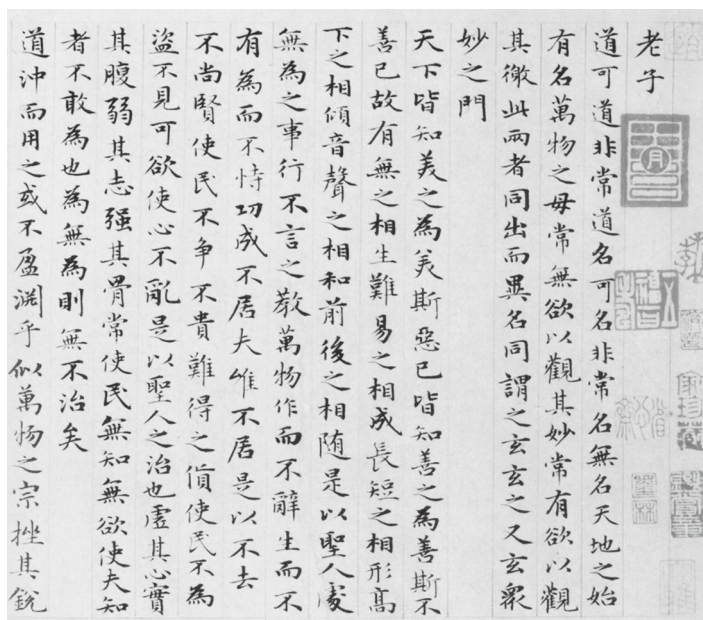 老子
道可道非常道名可名非常名無名天地之始
有名萬物之母常無欲以觀其妙常有欲以觀
其徼此兩者同出而異名同謂之玄玄之又玄衆
妙之門
天下皆知美之為美斯惡已皆知善之為善斯不
善已故有無之相生難易之相成長短之相形高
下之相傾音聲之相和前後之相随是以聖人處
無為之事行不言之教萬物作而不辭生而不
有為而不恃功成不居夫惟不居是以不去
不尚賢使民不争不貴難得之貨使民不為
盜不見可欲使心不亂是以聖人之治也虛其心實
其腹弱其志强其骨常使民無知無欲使夫知
者不敢為也為無為則無不治矣
道沖而用之或不盈淵乎似萬物之宗挫其銳